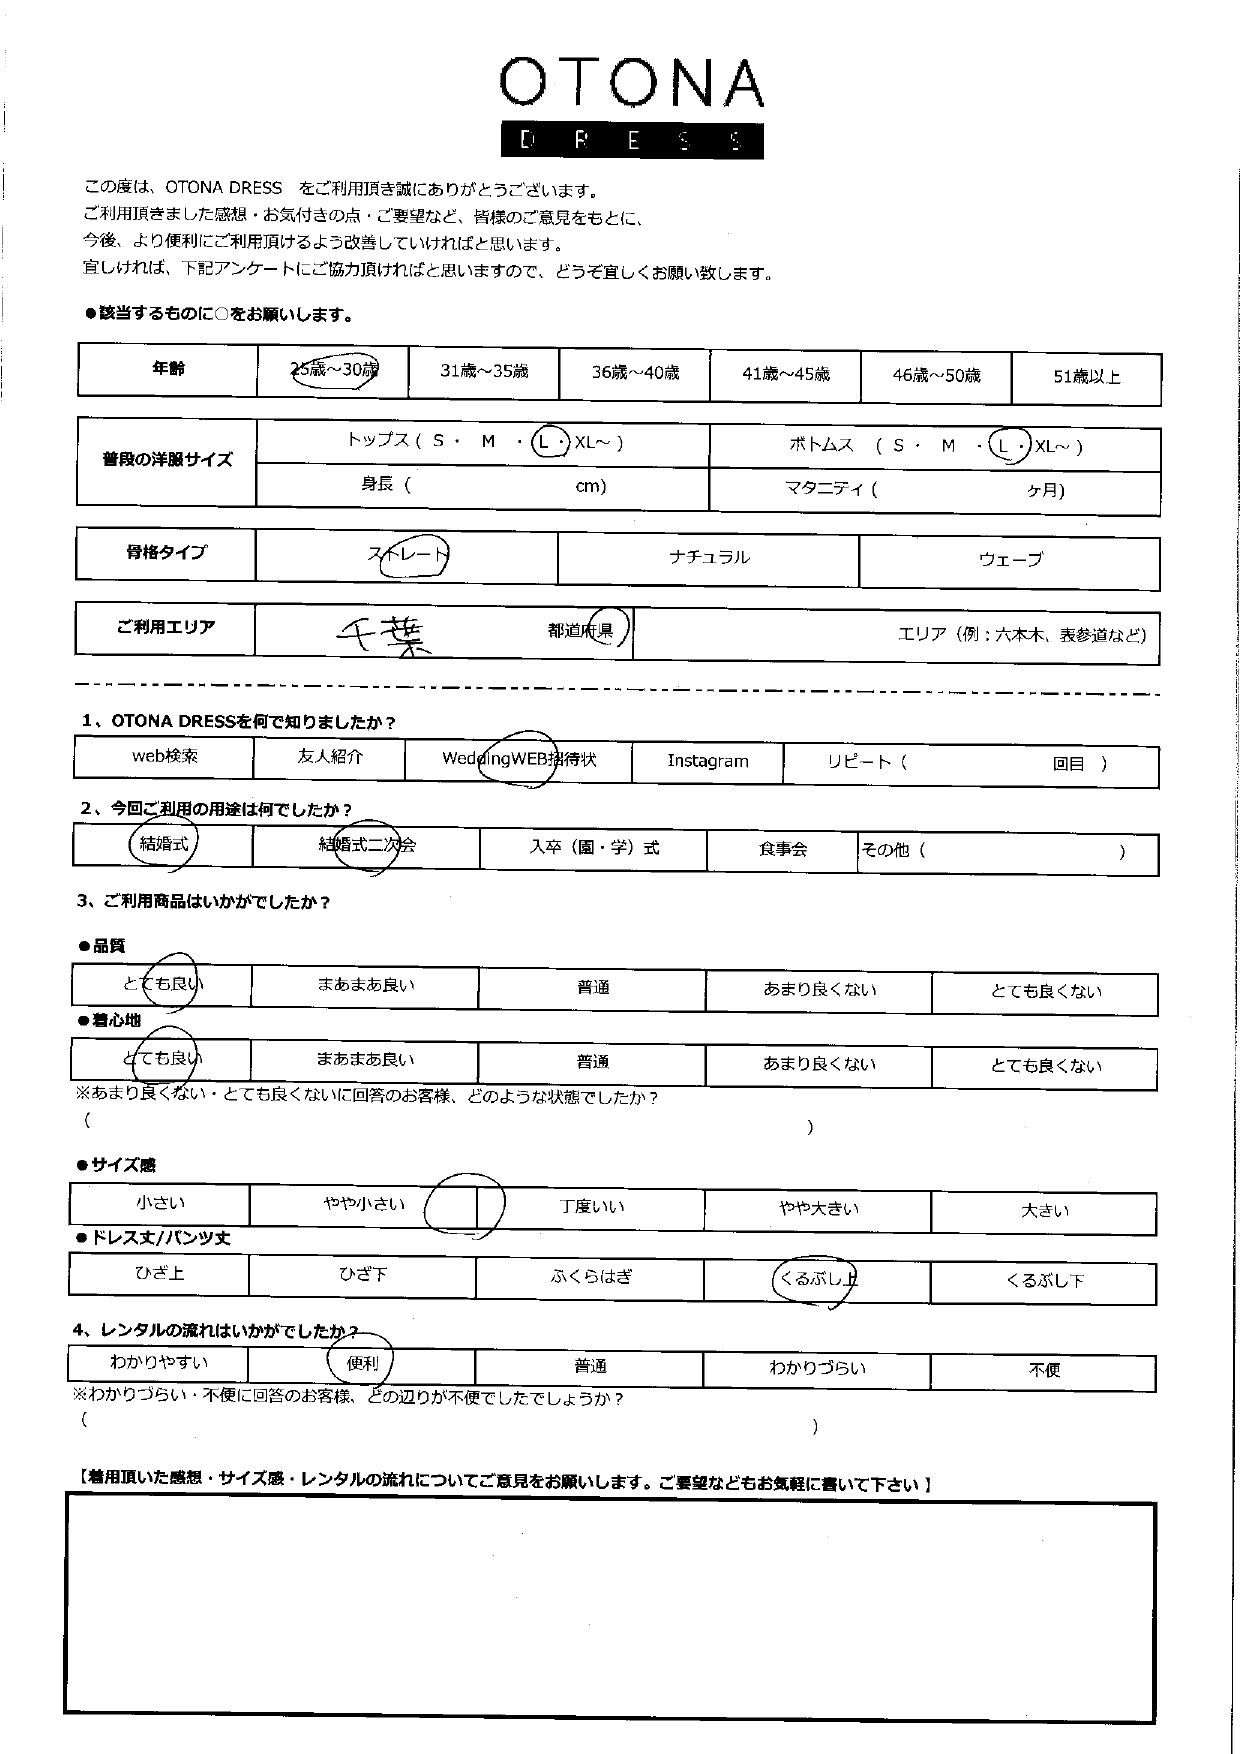 OTONA
DRESS
この度は、OTONA DRESS　をご利用頂き誠にありがとうございます。
ご利用頂きました感想・お気付きの点・ご要望など、皆様のご意見をもとに、
今後、より便利にご利用頂けるよう改善していければと思います。
宜しければ、下記アンケートにご協力頂ければと思いますので、どうぞ宜しくお願い致します。
●該当するものに○をお願いします。
年齢 25歳～30歳 31歳～35歳 36歳～40歳 41歳～45歳 46歳～50歳 51歳以上
普段の洋服サイズ トップス ( S ・ M ・ L ・ XL～ ) ボトムス ( S ・ M ・ L ・ XL～ )
身長 ( cm) マタニティ ( ヶ月)
骨格タイプ ストレート ナチュラル ウェーブ
ご利用エリア 千葉 都道府県 エリア（例：六本木、表参道など）
1、OTONA DRESSを何で知りましたか？
web検索 友人紹介 WeddingWEB招待状 Instagram リピート ( 回目 )
2、今回ご利用の用途は何でしたか？
結婚式 結婚式二次会 入卒（園・学）式 食事会 その他 ( )
3、ご利用商品はいかがでしたか？
●品質
とても良い まあまあ良い 普通 あまり良くない とても良くない
●着心地
とても良い まあまあ良い 普通 あまり良くない とても良くない
※あまり良くない・とても良くないに回答のお客様、どのような状態でしたか？
( )
●サイズ感
小さい やや小さい 丁度いい やや大きい 大きい
●ドレス丈/パンツ丈
ひざ上 ひざ下 ふくらはぎ くるぶし上 くるぶし下
4、レンタルの流れはいかがでしたか？
わかりやすい 便利 普通 わかりづらい 不便
※わかりづらい・不便に回答のお客様、どの辺りが不便でしたでしょうか？
( )
【着用頂いた感想・サイズ感・レンタルの流れについてご意見をお願いします。ご要望などもお気軽に書いて下さい】